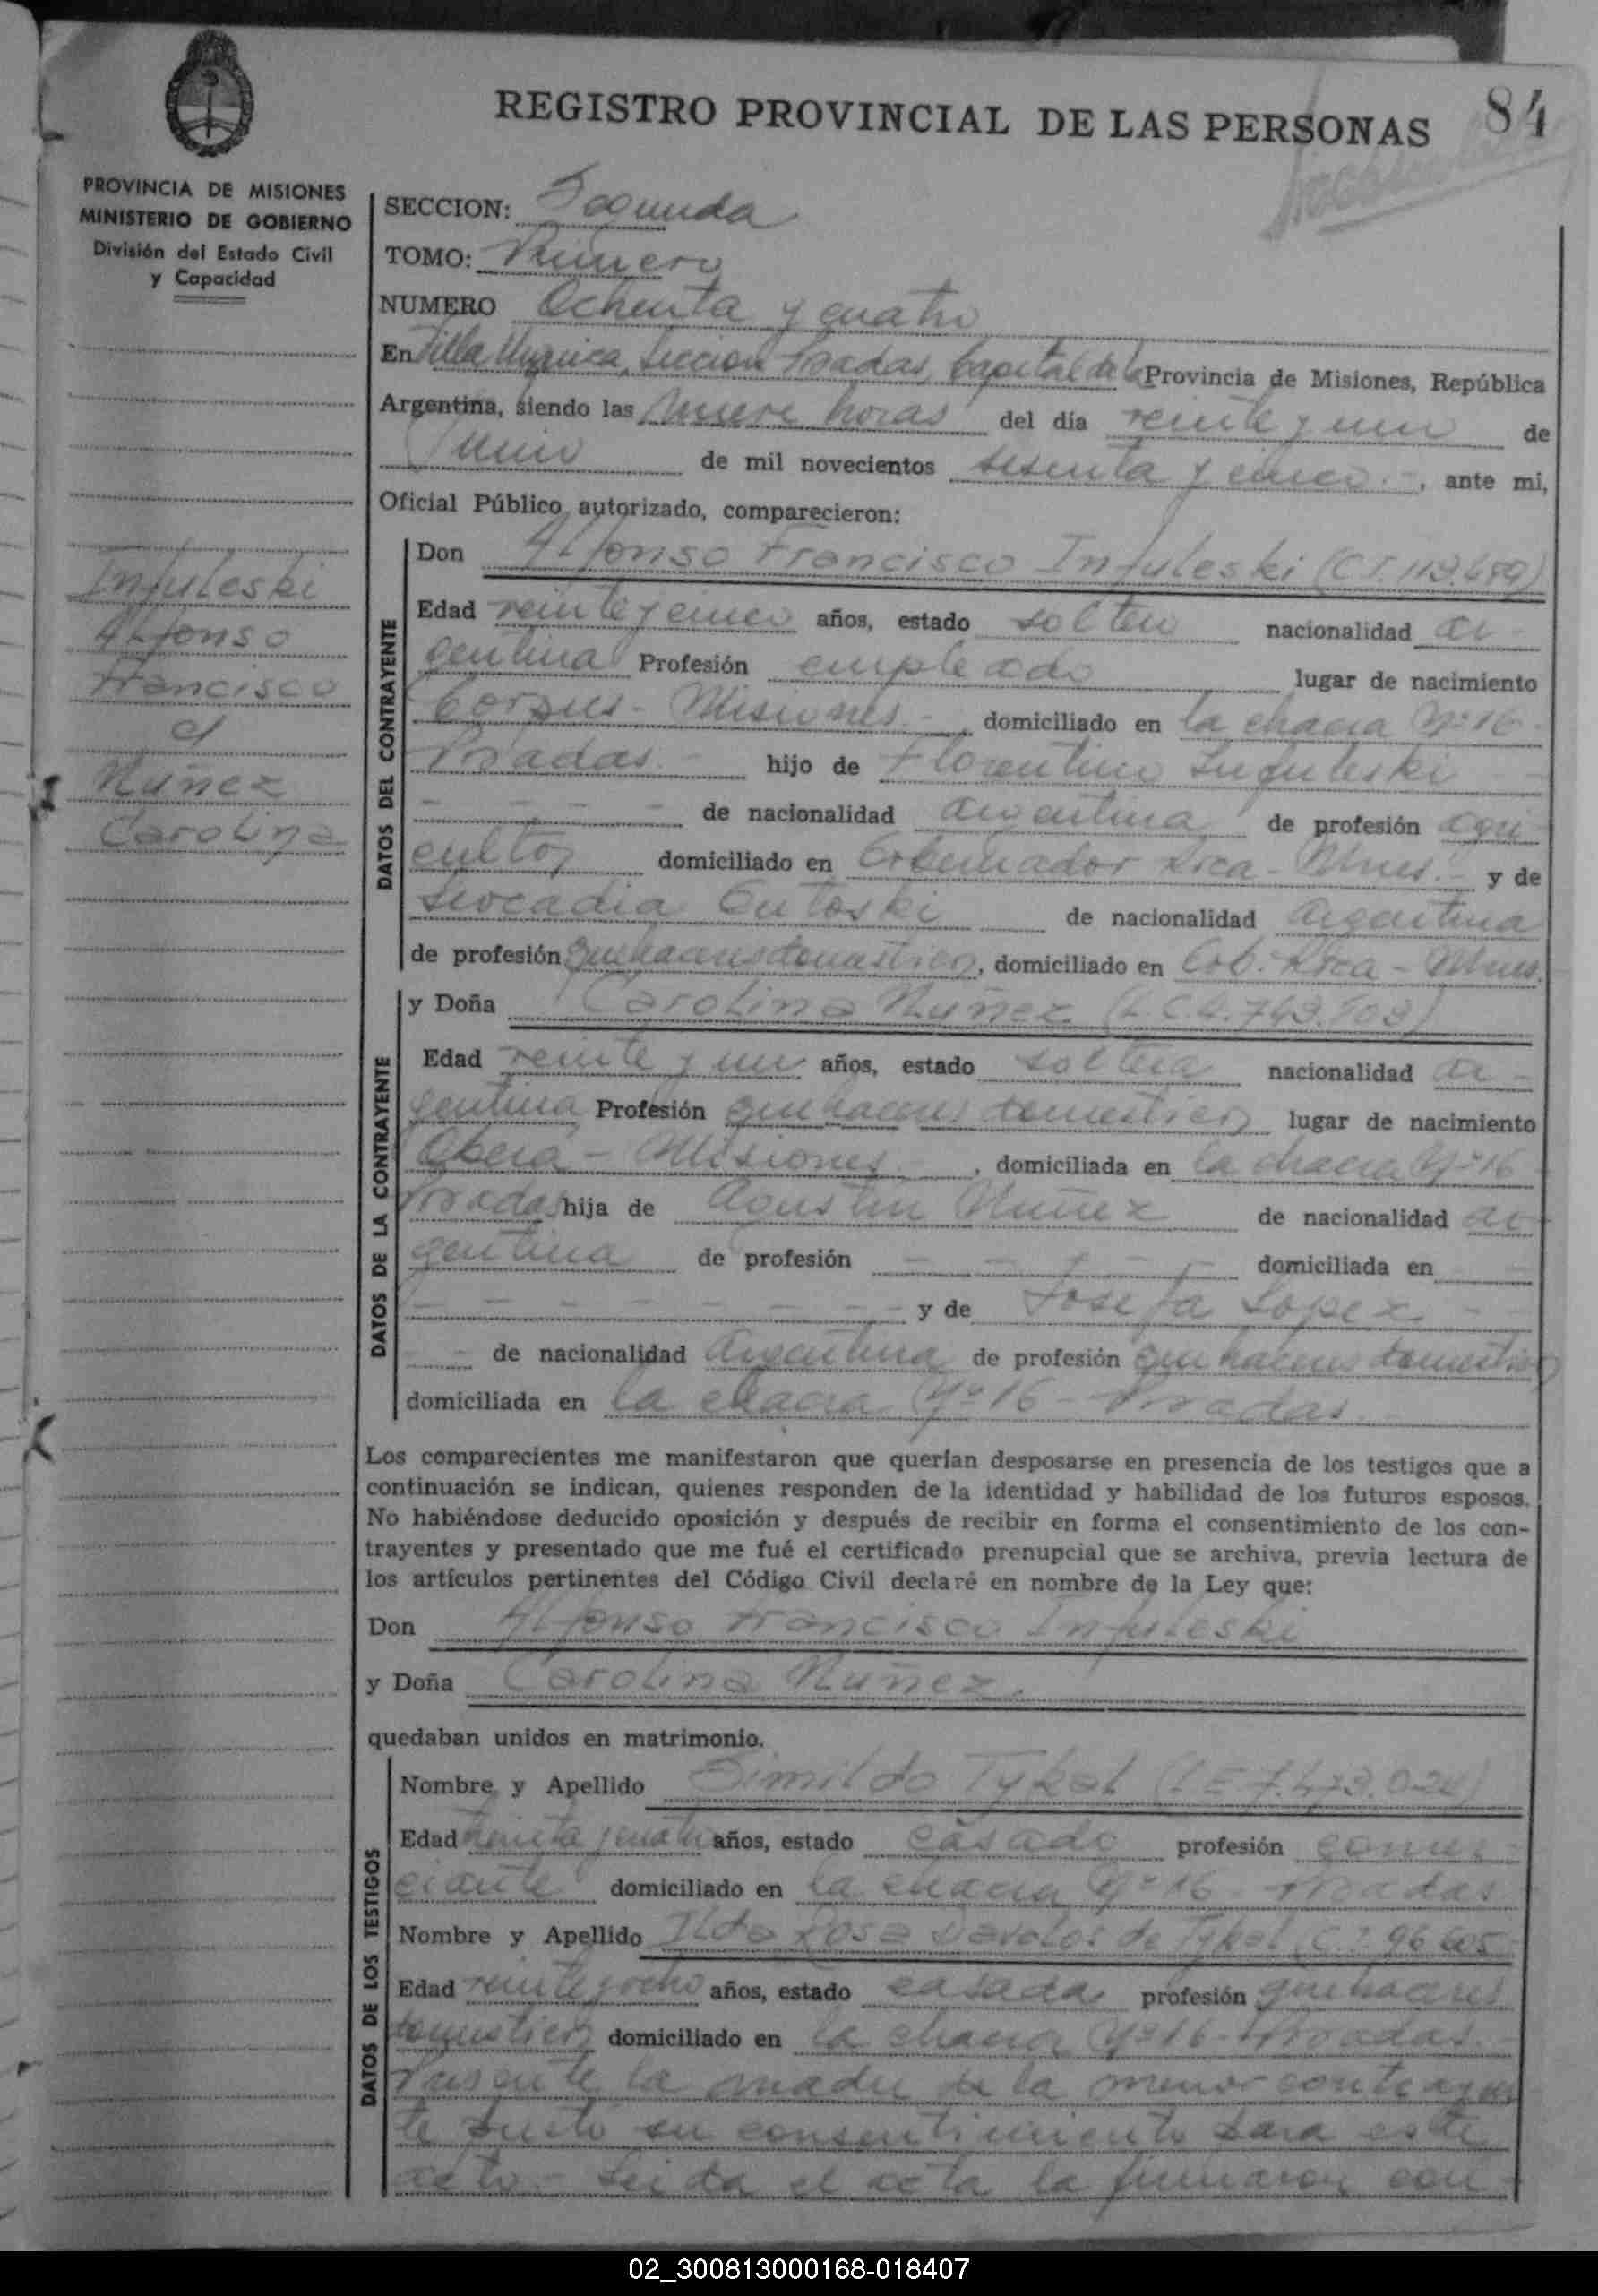 REGISTRO PROVINCIAL DE LAS PERSONAS 84
PROVINCIA DE MISIONES
MINISTERIO DE GOBIERNO
División del Estado Civil
y Capacidad
SECCION: Segunda
TOMO: Primero
NUMERO Ochenta y cuatro
En Villa Urquiza, Seccion Posadas, Capital de la Provincia de Misiones, República
Argentina, siendo las nueve horas del día veinte y un de
Junio de mil novecientos sesenta y cinco.-, ante mi,
Oficial Público autorizado, comparecieron:
Infuleski
Alfonso
Francisco
c/
Nuñez
Carolina
DATOS DEL CONTRAYENTE
Don Alfonso Francisco Infuleski (C.I. 113.659)
Edad veinte y cinco años, estado soltero nacionalidad ar-
gentina Profesión empleado lugar de nacimiento
Corpus - Misiones -, domiciliado en la chacra Nº 16 -
Posadas - hijo de Florentino Infuleski
- - - - de nacionalidad argentina de profesión agri-
cultor domiciliado en Gobernador Roca - Mnes.- y de
Leocadia Gutoski de nacionalidad argentina
de profesión quehaceres domesticos, domiciliado en Gob. Roca - Mnes.
DATOS DE LA CONTRAYENTE
y Doña Carolina Nuñez (L.C. 4.743.
Edad veinte y un años, estado soltera nacionalidad ar-
gentina Profesión quehaceres domesticos lugar de nacimiento
Oberá - Misiones, domiciliada en la chacra Nº 16 -
Posadas hija de Agustin Nuñez de nacionalidad ar-
gentina de profesión - - - - - domiciliada en - -
- - - - - - - - y de Josefa Lopez - -
- - de nacionalidad argentina de profesión quehaceres domesticos
domiciliada en la chacra Nº 16 - Posadas. -
Los comparecientes me manifestaron que querían desposarse en presencia de los testigos que a
continuación se indican, quienes responden de la identidad y habilidad de los futuros esposos.
No habiéndose deducido oposición y después de recibir en forma el consentimiento de los con-
trayentes y presentado que me fué el certificado prenupcial que se archiva, previa lectura de
los artículos pertinentes del Código Civil declaré en nombre de la Ley que:
Don Alfonso Francisco Infuleski
y Doña Carolina Nuñez.
quedaban unidos en matrimonio.
DATOS DE LOS TESTIGOS
Nombre y Apellido Simildo Tykal (L E 7.473.024)
Edad treinta y cuatro años, estado casado profesión comer-
ciante domiciliado en la chacra Nº 16 - Posadas
Nombre y Apellido Ilda Rosa Davalos de Tykal C.I. 96.605
Edad veinte y ocho años, estado casada profesión quehaceres
domesticos domiciliado en la chacra Nº 16 - Posadas. -
Presente la madre de la menor contrayen-
te prestó su consentimiento para este
acto.- Leida el acta la firmaron con
02_300813000168-018407